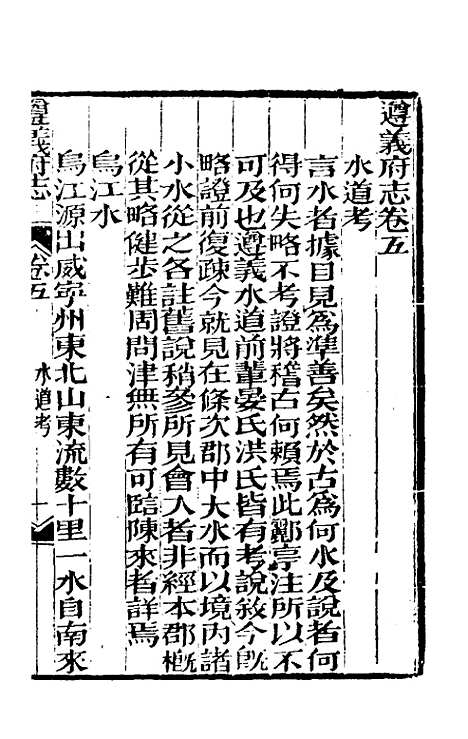 遵義府志卷五
水道考
言水者據目見為準善矣然於古為何水及說者何
得何失略不考證將稽古何賴焉此酈亭注所以不
可及也遵義水道前輩晏氏洪氏皆有考說敘今既
略證前復疎今就見在條次郡中大水而以境內諸
小水從之各註舊說稍參所見會入者非經本郡槪
從其略健步難周問津無所有可臨陳來者詳焉
烏江水
烏江源出威寧州東北山東流數十里一水自南來
遵義府志
卷五
水道考
一